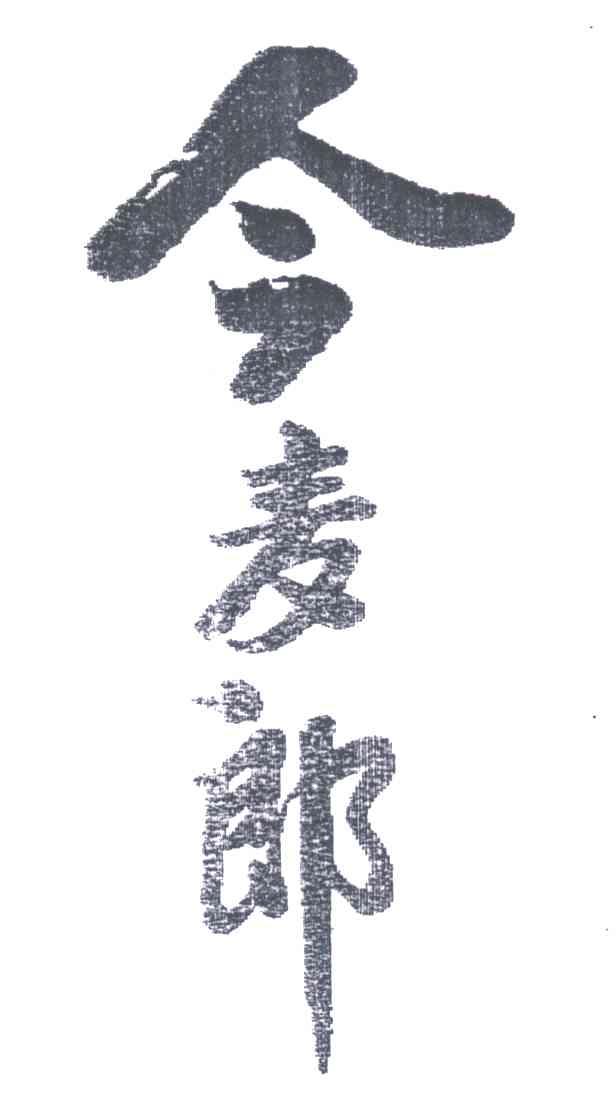 今麦郎